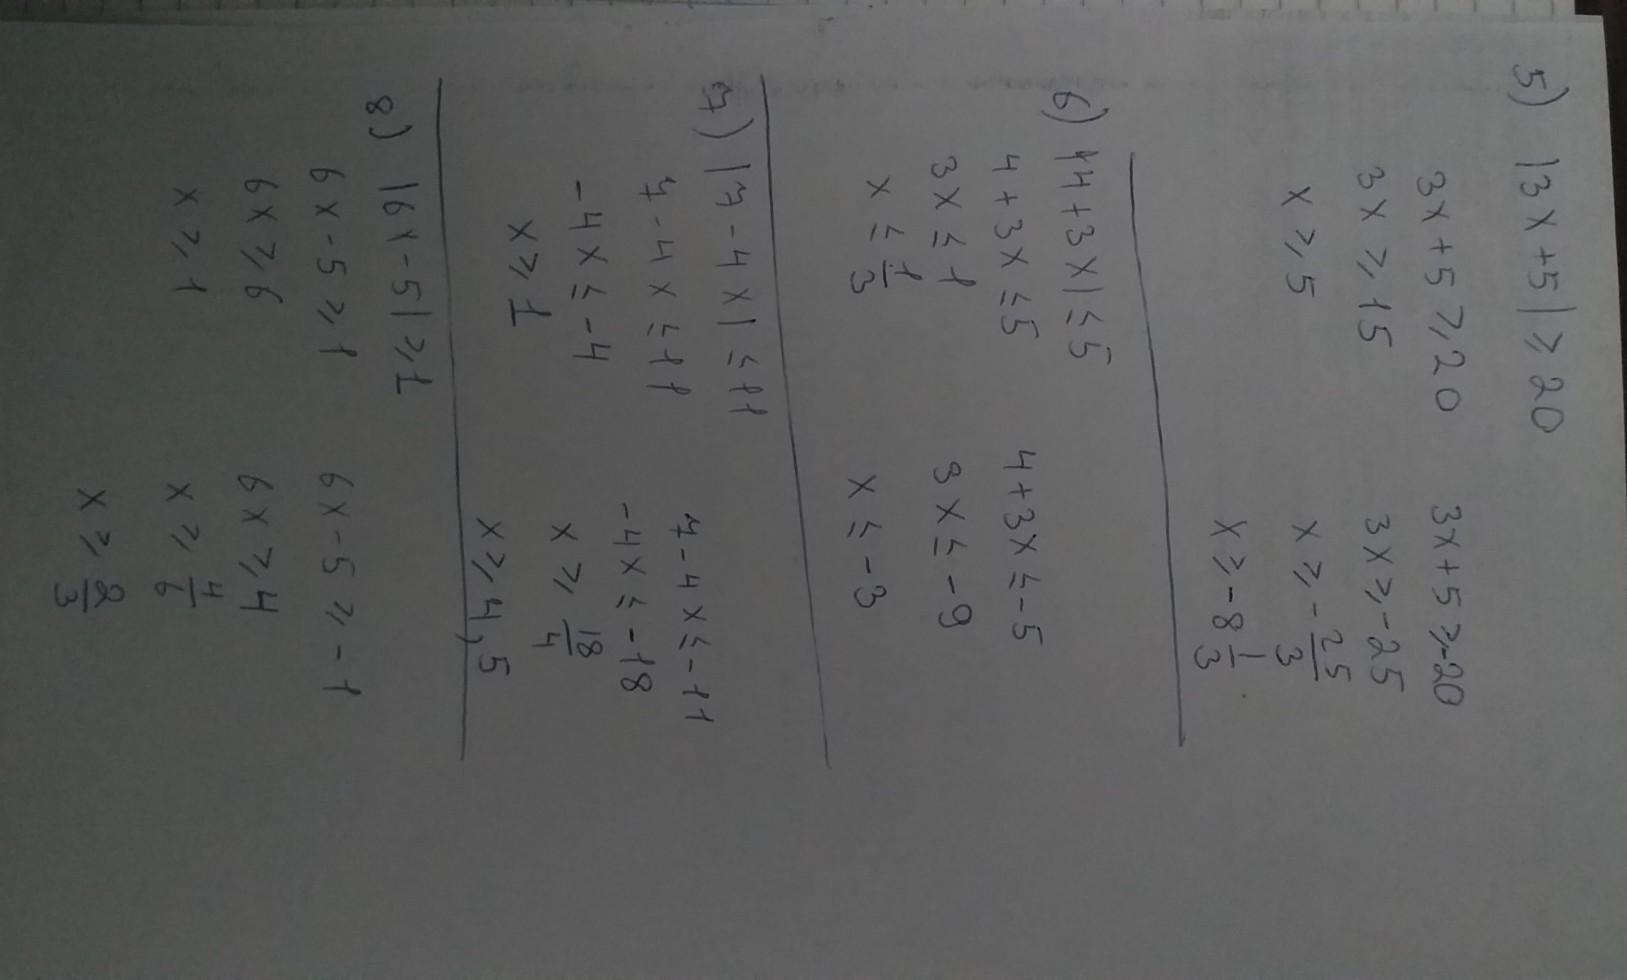 5) |3x+5| ⩾ 20
3x+5 ⩾ 20 3x+5 ⩾ -20
3x ⩾ 15 3x ⩾ -25
x ⩾ 5 x ⩾ -25/3
x ⩾ -8 1/3
6) |4+3x| ≤ 5
4+3x ≤ 5 4+3x ≤ -5
3x ≤ 1 3x ≤ -9
x ≤ 1/3 x ≤ -3
7) |7-4x| ≤ 11
7-4x ≤ 11 7-4x ≤ -11
-4x ≤ -4 -4x ≤ -18
x ⩾ 1 x ⩾ 18/4
x ⩾ 4,5
8) |6x-5| ⩾ 1
6x-5 ⩾ 1 6x-5 ⩾ -1
6x ⩾ 6 6x ⩾ 4
x ⩾ 1 x ⩾ 4/6
x ⩾ 2/3